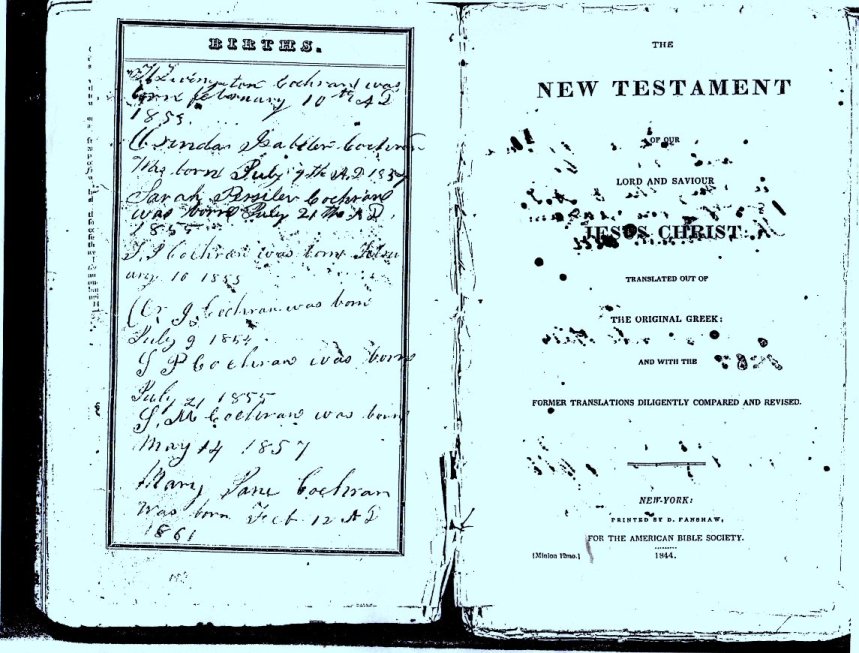 BIRTHS.
Livingston Cochran was
born February 10th AD
1853
Cochran
Was born July 9th A.D 185
Sarah Cochran
was born July 21th A D
1855
Cochran was born Febru
ary 10 1853
J. Cochran was born
July 9 1854
S P Cochran was born
July 21 1855
S. M Cochran was born
May 14 1857
Mary Jane Cochran
was born Feb 12 AD
1861
THE
NEW TESTAMENT
OF OUR
LORD AND SAVIOUR
JESUS CHRIST:
TRANSLATED OUT OF
THE ORIGINAL GREEK:
AND WITH THE
FORMER TRANSLATIONS DILIGENTLY COMPARED AND REVISED.
NEW-YORK:
PRINTED BY D. FANSHAW,
FOR THE AMERICAN BIBLE SOCIETY.
[Minion 12mo.]
1844.